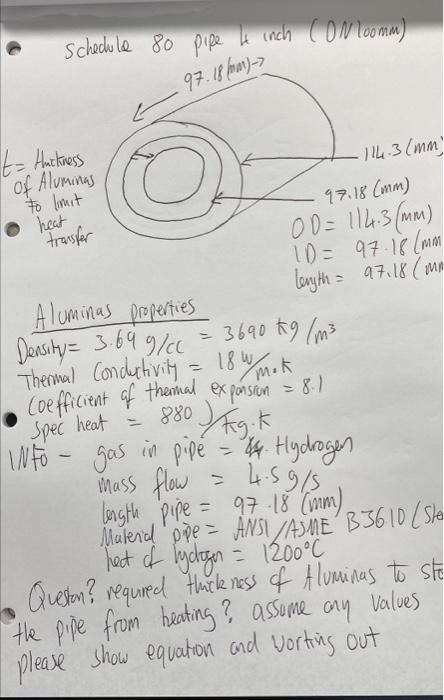 Schedule 80 pipe 4 inch (DN100mm)
97.18(mm)
t= thickness
of Aluminas
to limit
heat
transfer
114.3(mm)
97.18(mm)
OD= 114.3(mm)
ID= 97.18(mm
length= 97.18(mm
Aluminas properties
Density= 3.69 g/cc = 3690 kg/m³
Thermal Conductivity = 18 W/m.k
Coefficient of thermal expansion = 8.1
Spec heat = 880 J/kg.k
INFO - gas in pipe = Hydrogen
mass flow = 4.5 g/s
length pipe = 97.18(mm)
Material pipe = ANSI/ASME B3610 (Ste
heat of hydrogn = 1200°C
Queston? required thickness of Aluminas to sto
the pipe from heating? assume any values
please show equation and worting out